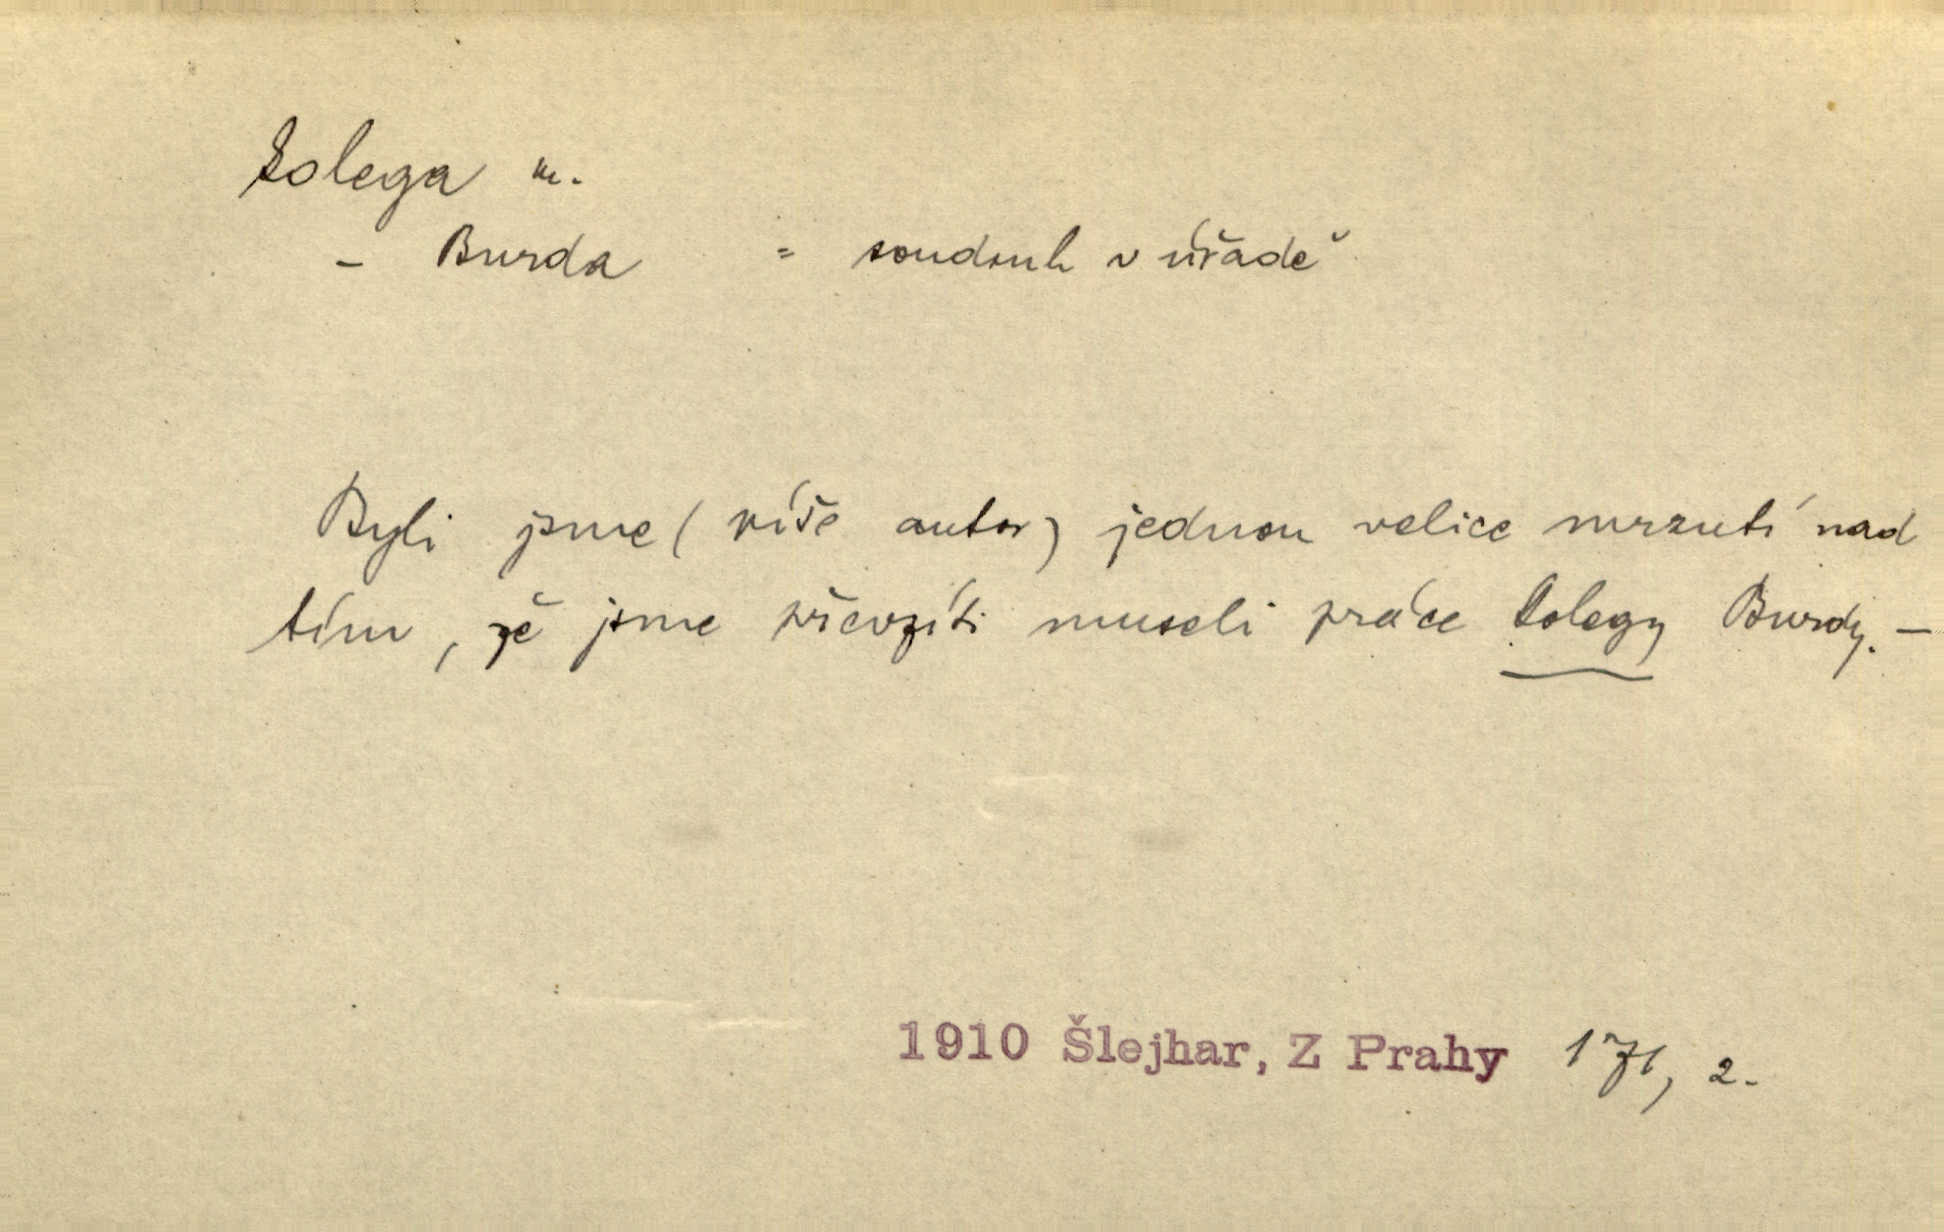 kolega m.
– Burda = soudruh v úřadě
Byli jsme (píše autor) jednou velice mrzutí nad
tím, že jsme převzíti museli práce kolegy Burdy. –
1910 Šlejhar, Z Prahy 171, 2.